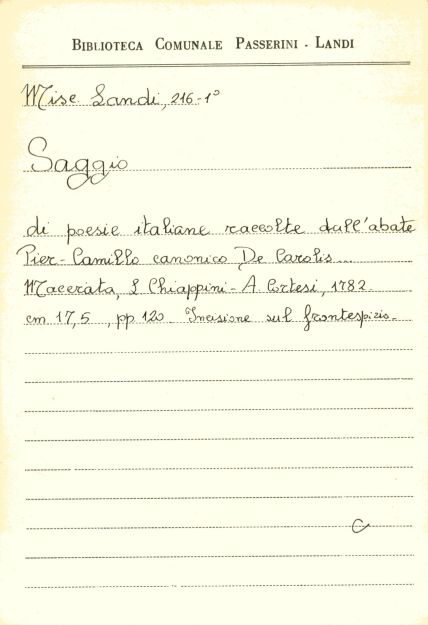 BIBLIOTECA COMUNALE PASSERINI - LANDI
Misc. Landi, 216-1°
Saggio
di poesie italiane raccolte dall'abate
Pier-Camillo canonico De Carolis...
Macerata, L Chiappini - A. Cortesi, 1782.
cm 17,5, pp 120. Incisione sul frontespizio.
C